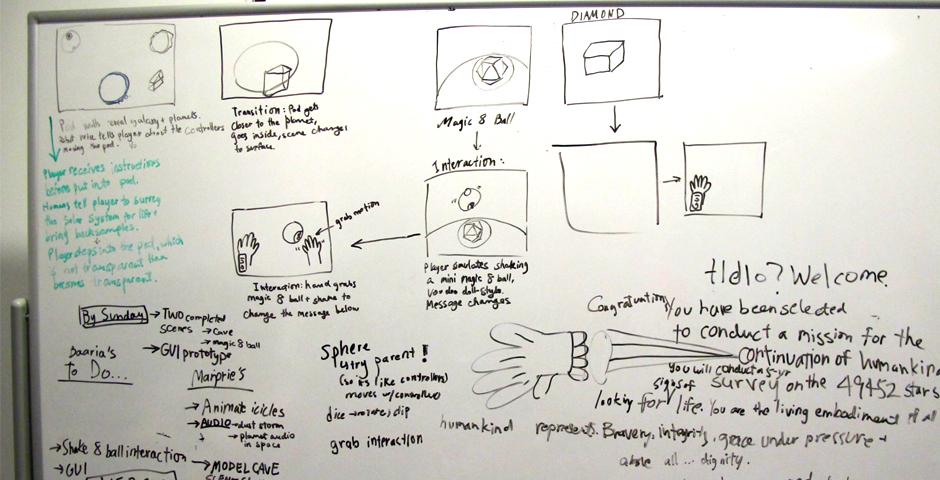 DIAMOND
Transition: Pod gets
closer to the planet,
goes inside, scene changes
to surface.
Magic 8 Ball
Player receives instructions
before put into pod.
Humans tell player to survey
the solar system for life +
bring back samples.
Player steps into the pod, which
if not transparent then
becomes transparent.
Interaction:
grab motion
Interaction: hand grabs
magic 8 ball + shake to
change the message below
Player simulates shaking
a mini magic 8 ball,
voodoo doll-style.
Message changes
By Sunday → Two completed
scenes → Cave
→ magic 8 ball
→ GUI prototype
Baaria's
To Do...
→ Shake 8 ball interaction
→ GUI
Marpie's
→ Animate icicles
→ AUDIO → dust storm
→ planet audio
in space
→ MODEL CAVE
Sphere
try parent!
(so its like controller)
moves w/controller
dice → rotate, clip
grab interaction
Hello? Welcome.
Congratuation, You have been selected
to conduct a mission for the
continuation of humankind
You will conduct a 5-yr
survey on the 49452 stars
looking for signs of life. You are the living embodiment of all
humankind represents. Bravery, integrity, grace under pressure +
above all ... dignity.